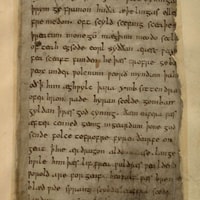 þrym ge frunon huða æþelingas elle
fremedon. oft scyld scefing sceaþe
þreatum monegū mægþum meodo setla
of teah egsode eorl syððan ærest ƿear
fea sceaft funden he þæs frofre geba
ƿeox under ƿolcnum ƿeorð myndum þah
oð þ him æghƿylc þara ymb sittendra
ofer hron rade hyran scolde gomban
gyldan þ ƿæs god cyning. ðæm eafera ƿæs
æfter cenned geong in geardum þone god
sende folce tofrofre fyren ðearfe on
geat þ hie ær drugon aldor ase. lange
hƿile him þæs lif frea ƿuldres ƿealdend
ƿorold are for geaf. beoƿulf ƿæs breme
blæd ƿide sprang scyldes eafera scede